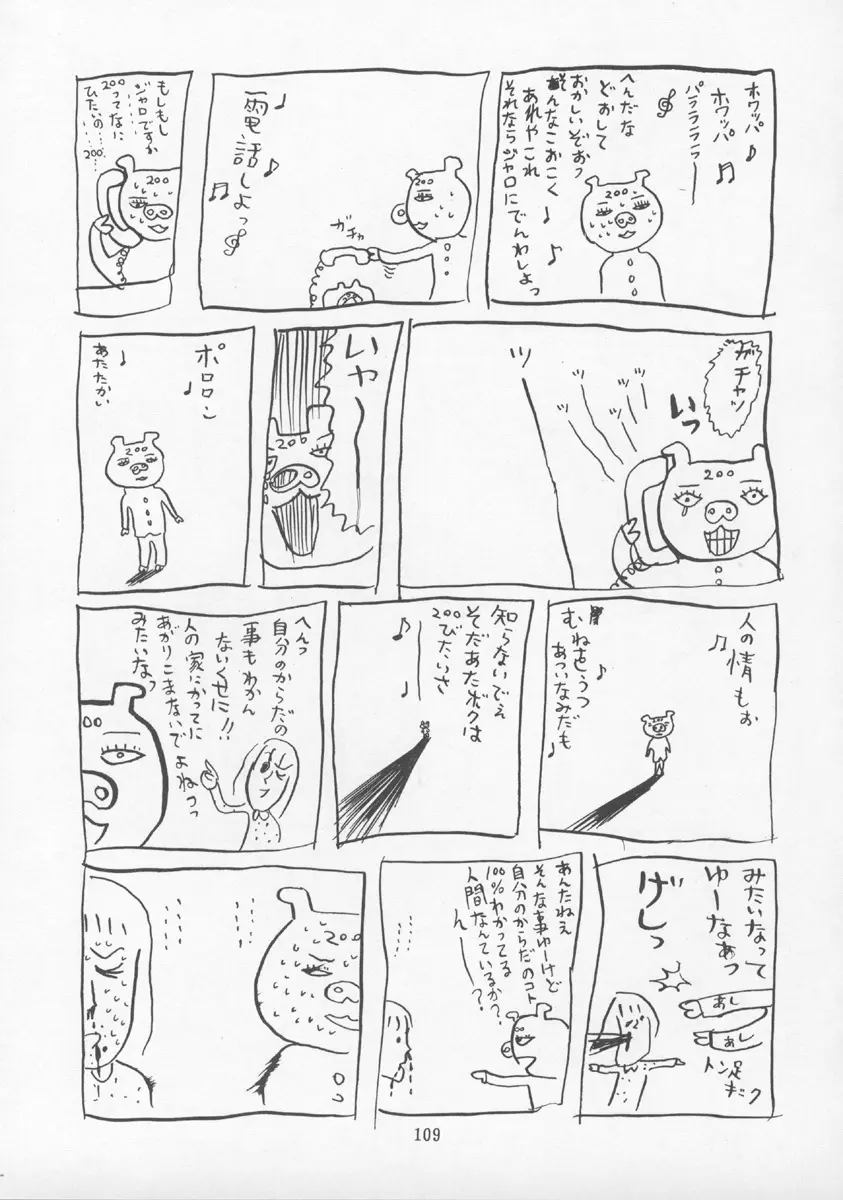 ホワッパ♪
ホワッパ♬
パララランラー
へんだな
どおして
おかしいぞおっ
そんなこおこく♩
あれやこれ♪
それならジャロにでんわしよっ
200
電話しよっ
ガチャ
200
もしもし
ジャロですか
200ってなに
ひたいの…200…
200
ガチャッ
いっ
ツ
ツ
ツ
ツ
ツ
200
いやー
200
ポロロン♩
あたたかい♩
200
人の情もぉ♬
むねをうつ
あついなみだも♪
知らないでぇ
そだあたボクは
200びたいさ
♪
♩
へんっ
自分のからだの
事もわかん
ないくせに!!
人の家にかってに
あがりこまないでよねっっ
みたいなっ
00
みたいなって
ゆーなあっ
げしっ
あし
あし
トン足キック
あんたねえ
そんな事ゆーけど
自分のからだのコト
100%わかってる
人間なんているか?
ん―?
200
109